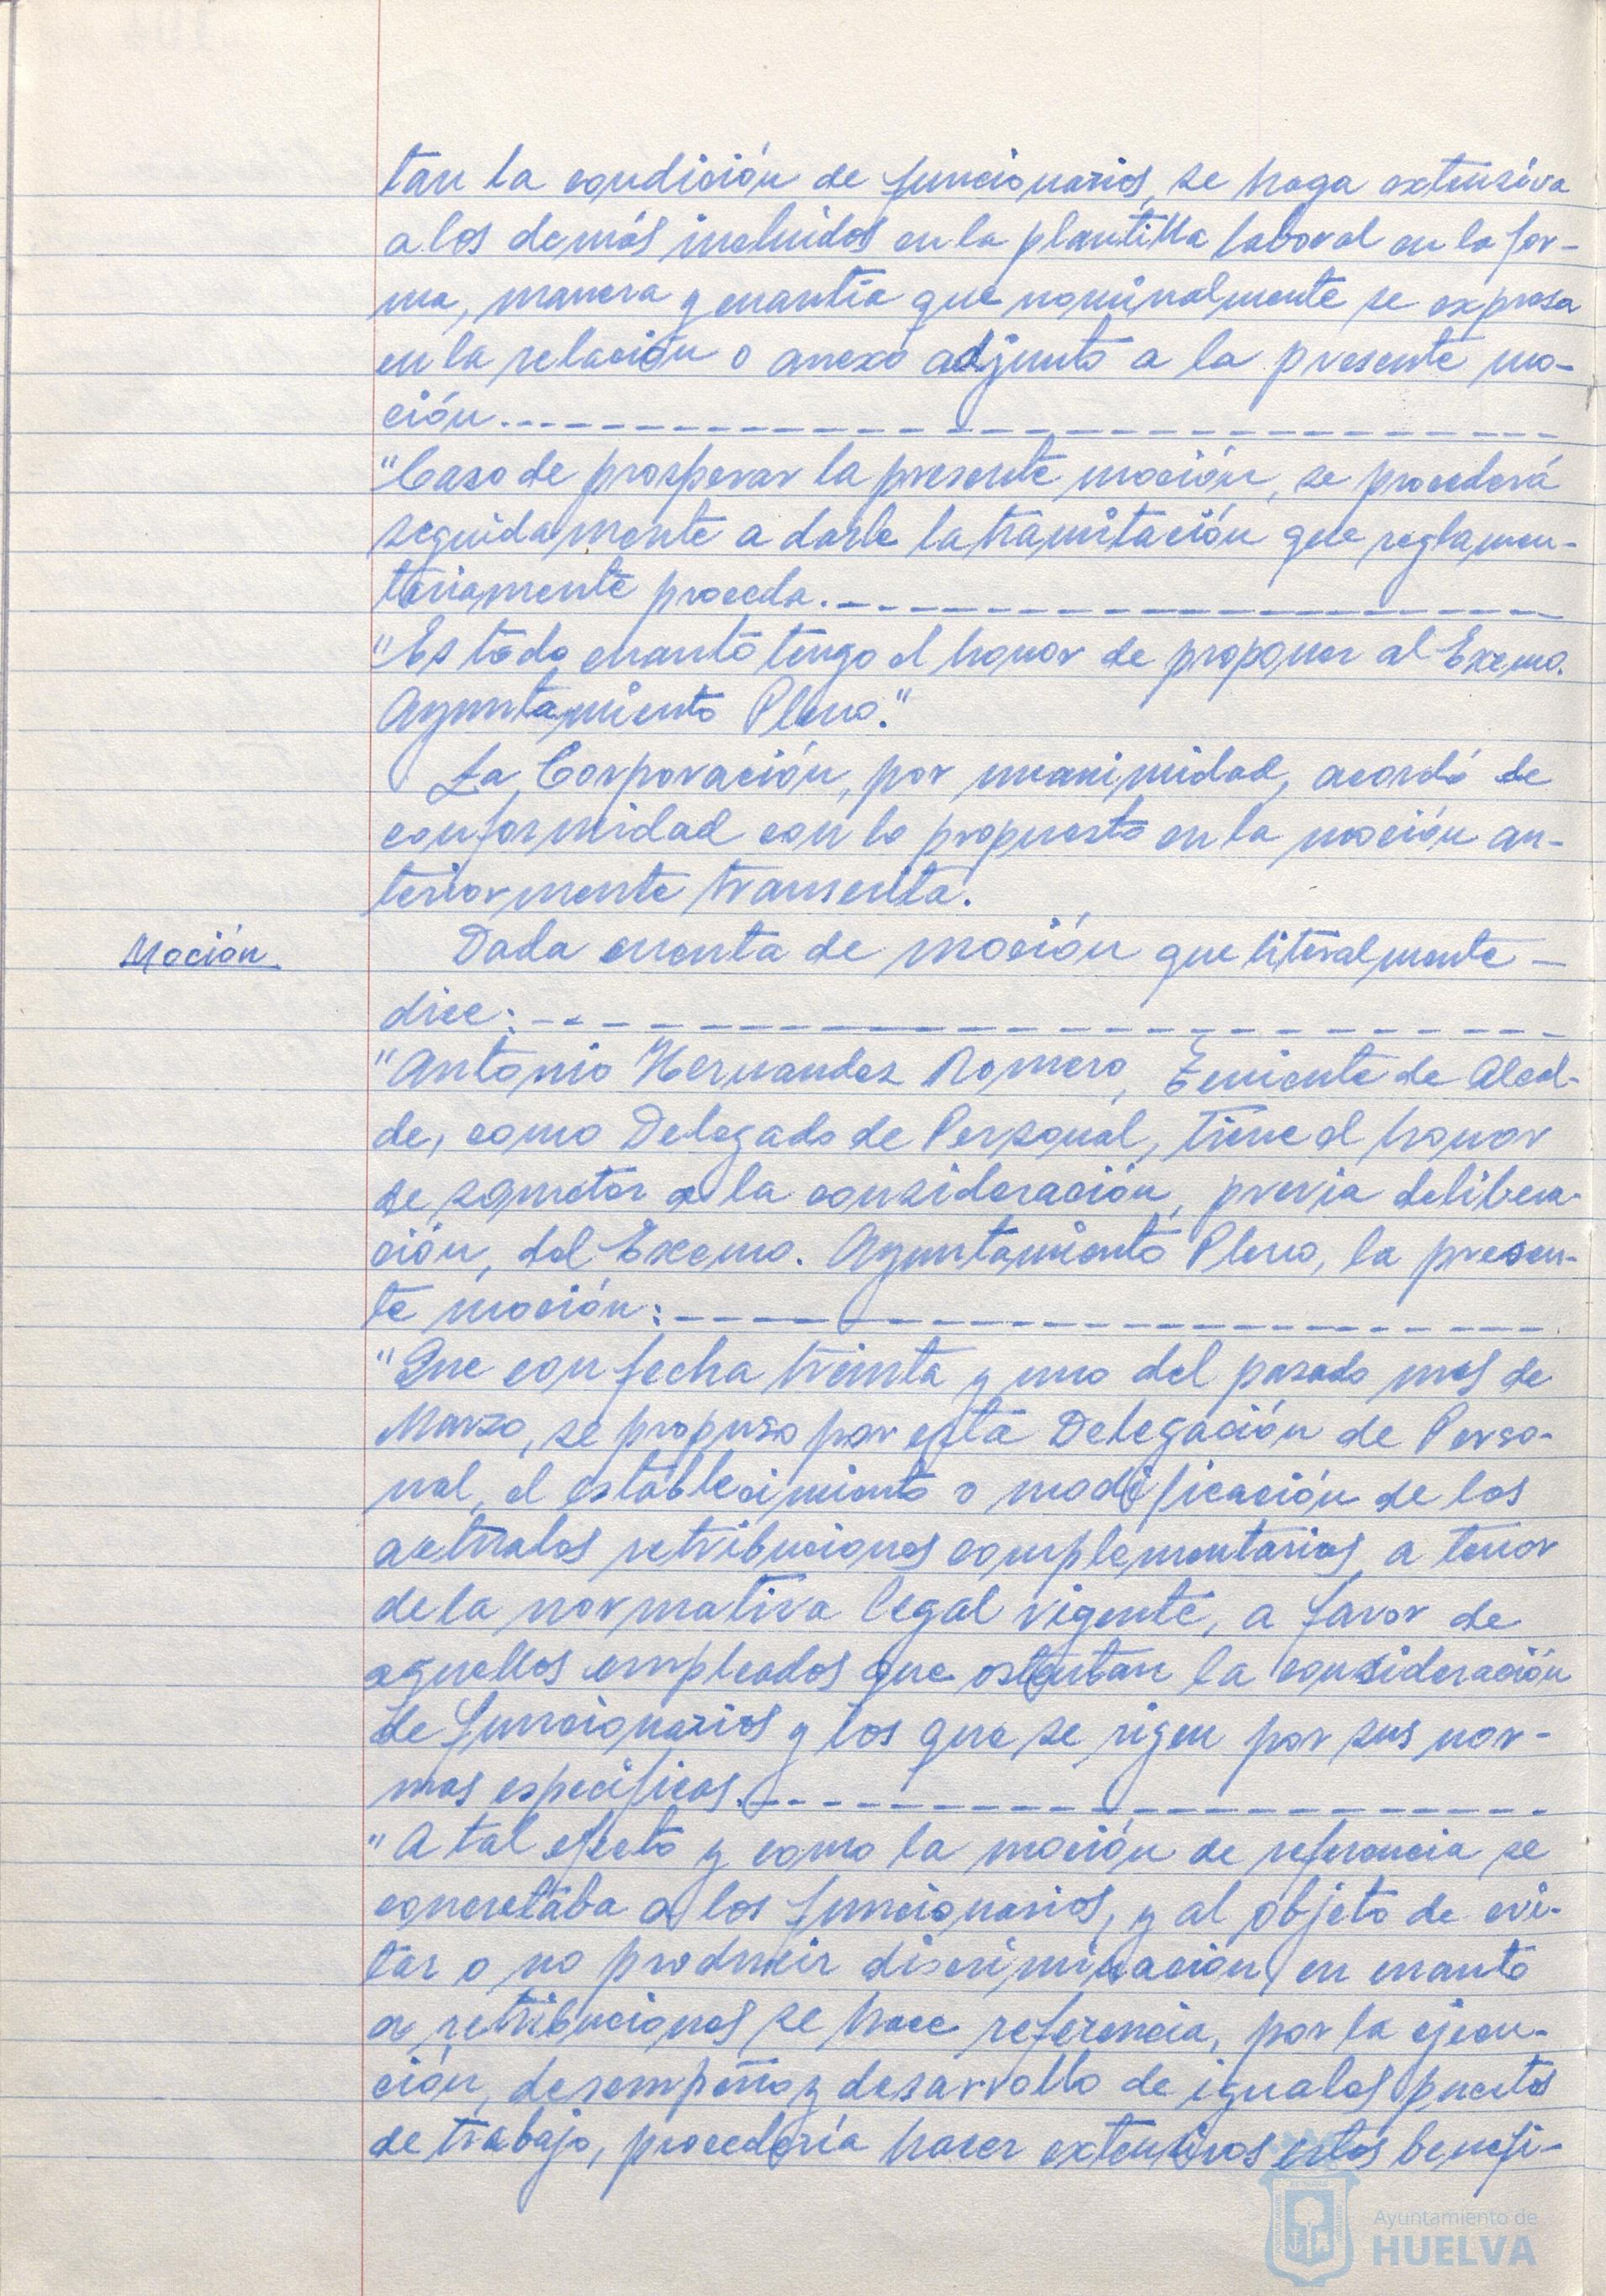 tan la condición de funcionarios, se haga extensiva
a los demás incluidos en la plantilla laboral en la for-
ma, manera y cuantía que nominalmente se expresa
en la relación o anexo adjunto a la presente mo-
ción.
"Caso de prosperar la presente moción, se procederá
seguidamente a darle la tramitación que reglamen-
tariamente proceda.
"Es todo cuanto tengo el honor de proponer al Excmo.
Ayuntamiento Pleno."
La Corporación, por unanimidad, acordó de
conformidad con lo propuesto en la moción an-
teriormente transcrita.
Moción
Dada cuenta de moción que literalmente -
dice:
"Antonio Hernandez Romero, Teniente de Alcal-
de, como Delegado de Personal, tiene el honor
de someter a la consideración, previa delibera-
ción, del Excmo. Ayuntamiento Pleno, la presen-
te moción:
"Que con fecha treinta y uno del pasado mes de
Marzo, se propuso por esta Delegación de Perso-
nal, el establecimiento o modificación de los
actuales retribuciones complementarias, a tenor
de la normativa legal vigente, a favor de
aquellos empleados que ostentan la consideración
de funcionarios y los que se rigen por sus nor-
mas específicas.
"A tal efecto y como la moción de referencia se
concretaba a los funcionarios, y al objeto de evi-
tar o no producir discriminación, en cuanto
a retribuciones se hace referencia, por la ejecu-
ción, desempeño y desarrollo de iguales puestos
de trabajo, procedería hacer extensivos estos benefi-
Ayuntamiento de
HUELVA